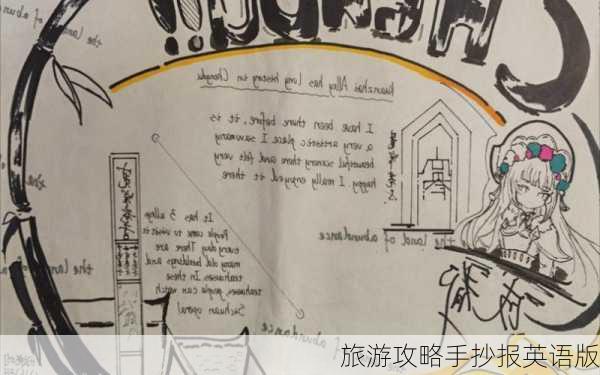 CHENGDU!!
the land of abun
Kuanzhai Alley has long history in Chengdu
I have been there before, it is
a very artistic place I saw many
beautiful scenery there and felt very
happy I really enjoyed it there
the land of abundance
It has 3 alleys
People come to visit it
every day There are
many old buildings and
teahouses. In these
teahouses, people can watch
Sichuan opera
the lan
abundance
成都
旅游攻略手抄报英语版